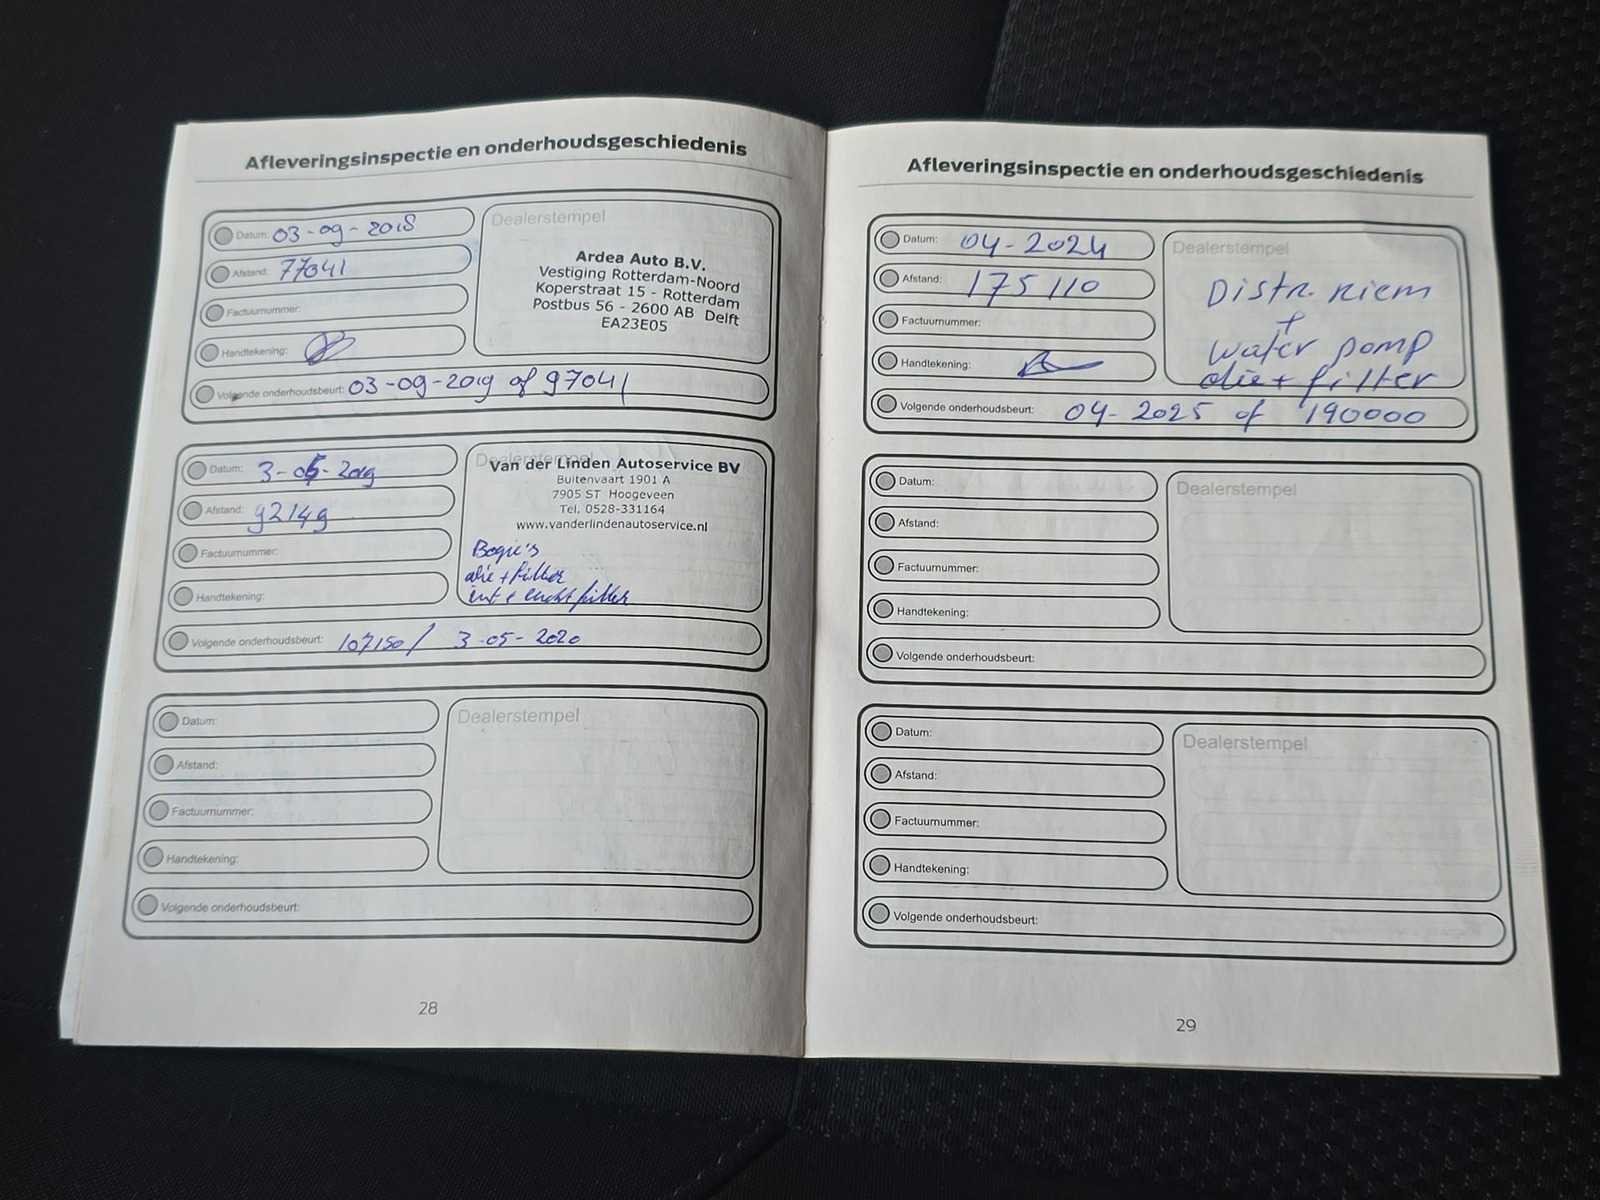 Afleveringsinspectie en onderhoudsgeschiedenis
Datum: 03-09-2018
Afstand: 77041
Factuurnummer:
Handtekening:
Volgende onderhoudsbeurt: 03-09-2019 of 97041
Dealerstempel
Ardea Auto B.V.
Vestiging Rotterdam-Noord
Koperstraat 15 - Rotterdam
Postbus 56 - 2600 AB Delft
EA23E05
Datum: 3-05-2019
Afstand: 92149
Factuurnummer:
Handtekening:
Volgende onderhoudsbeurt: 107150/ 3-05-2020
Dealerstempel
Van der Linden Autoservice BV
Buitenvaart 1901 A
7905 ST Hoogeveen
Tel. 0528-331164
www.vanderlindenautoservice.nl
Bogie's
olie + filter
int + luchtfilter
Datum:
Afstand:
Factuurnummer:
Handtekening:
Volgende onderhoudsbeurt:
Dealerstempel
28
Afleveringsinspectie en onderhoudsgeschiedenis
Datum: 04-2024
Afstand: 175110
Factuurnummer:
Handtekening:
Volgende onderhoudsbeurt: 04-2025 of 190000
Dealerstempel
Distr. riem
+
water pomp
olie + filter
Datum:
Afstand:
Factuurnummer:
Handtekening:
Volgende onderhoudsbeurt:
Dealerstempel
Datum:
Afstand:
Factuurnummer:
Handtekening:
Volgende onderhoudsbeurt:
Dealerstempel
29